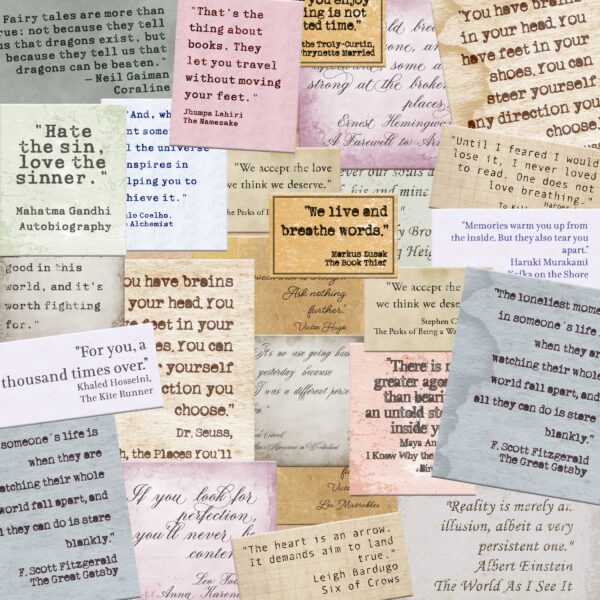 Fairy tales are more than
rue: not because they tell
us that dragons exist, but
because they tell us that
dragons can be beaten."
— Neil Gaiman
Coraline
"That's the
thing about
books. They
let you travel
without moving
your feet."
Jhumpa Lahiri
The Namesake
you enjoy
ing is not
ted time."
the Troly-Curtin,
Phrynette Married
some a
strong at the broken
places
Ernest Hemingway
A Farewell to Arm
you have brains
in your head. You
have feet in your
shoes. You can
steer yourself
any direction you
choose.
"Hate
the sin,
love the
sinner."
Mahatma Gandhi
Autobiography
"And, wh
nt some
l the universe
nspires in
lping you to
hieve it."
lo Coelho,
e Alchemist
"We accept the love
we think we deserve."
he Perks of B
ever our souls a
his and mine
"Until I feared I would
lose it, I never loved
to read. One does not
love breathing."
Harper
To Ki
"We live and
breathe words."
Markus Zusak
The Book Thief
"Memories warm you up from
the inside. But they also tear you
apart."
Haruki Murakami
Kafka on the Shore
good in this
world, and it's
worth fighting
for."
ou have brains
your head. You
ve feet in your
es. You can
r yourself
ction you
choose."
Dr. Seuss,
h, the Places You'll
Ask nothing
further."
Victor Hugo
"We accept the
we think we deserve
Stephen C
The Perks of Being a Wa
"The loneliest mome
in someone´s life i
when they are
watching their whole
world fall apart, and
all they can do is stare
blankly."
F. Scott Fitzgerald
The Great Gatsby
"For you, a
thousand times over."
Khaled Hosseini,
The Kite Runner
It's no use going back
yesterday because
I was a different perso
Carroll
Adventures in Wonderland
"There is n
greater agon
than beari
an untold st
inside y
Maya An
I Know Why the
Bir
someone´s life is
when they are
atching their whole
world fall apart, and
ll they can do is stare
blankly."
F. Scott Fitzgerald
The Great Gatsby
If you look for
perfection,
you'll never b
conten
Leo To
Anna Karen
Victo
Les Misérables
"The heart is an arrow.
It demands aim to land
true."
Leigh Bardugo
Six of Crows
"Reality is merely an
illusion, albeit a very
persistent one."
Albert Einstein
The World As I See It